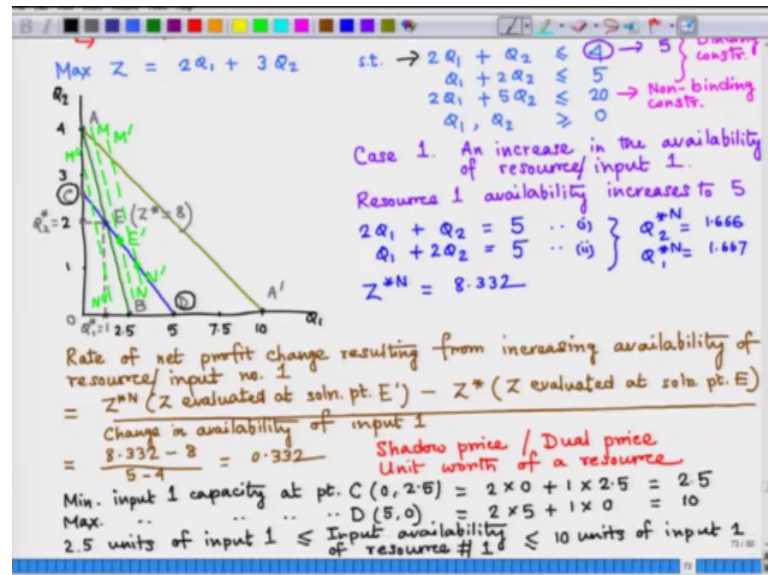 Max Z = 2Q₁ + 3Q₂
s.t. → 2Q₁ + Q₂ ≤ 4 → 5
Q₁ + 2Q₂ ≤ 5
2Q₁ + 5Q₂ ≤ 20 → Non-binding
Q₁, Q₂ ≥ 0
constr.
constr.
Case 1. An increase in the availability
of resource/input 1.
Resource 1 availability increases to 5
2Q₁ + Q₂ = 5 .. (i)
Q₁ + 2Q₂ = 5 .. (ii)
Q₂*ᴺ = 1.666
Q₁*ᴺ = 1.667
Z*ᴺ = 8.332
Q₂
4
A
M
M'
M"
3
C
Q₂* = 2
E (Z* = 8)
E'
1
N'
N
N"
B
D
A'
0
Q₁* = 1
2.5
5
7.5
10
Q₁
Rate of net profit change resulting from increasing availability of
resource/input no. 1
= Z*ᴺ (Z evaluated at soln. pt. E') – Z* (Z evaluated at soln. pt. E)
Change in availability of input 1
= 8.332 – 8 / 5 – 4 = 0.332
Shadow price / Dual price
Unit worth of a resource
Min. input 1 capacity at pt. C (0, 2.5) = 2 × 0 + 1 × 2.5 = 2.5
Max. .. .. .. .. D (5, 0) = 2 × 5 + 1 × 0 = 10
2.5 units of input 1 ≤ Input availability ≤ 10 units of input 1
of resource # 1
73